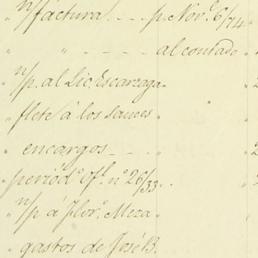 n/factura . _ . . p. Nov.e 6/74
" " . _ . _ . al contado
" n/p. al Lic. Escarzaga
" flete á los sauces "
" encargos _ . _ "
" periód.o Of.l n.o 26/33 . .
" n/p á Flor.o Meza "
" gastos de José B.